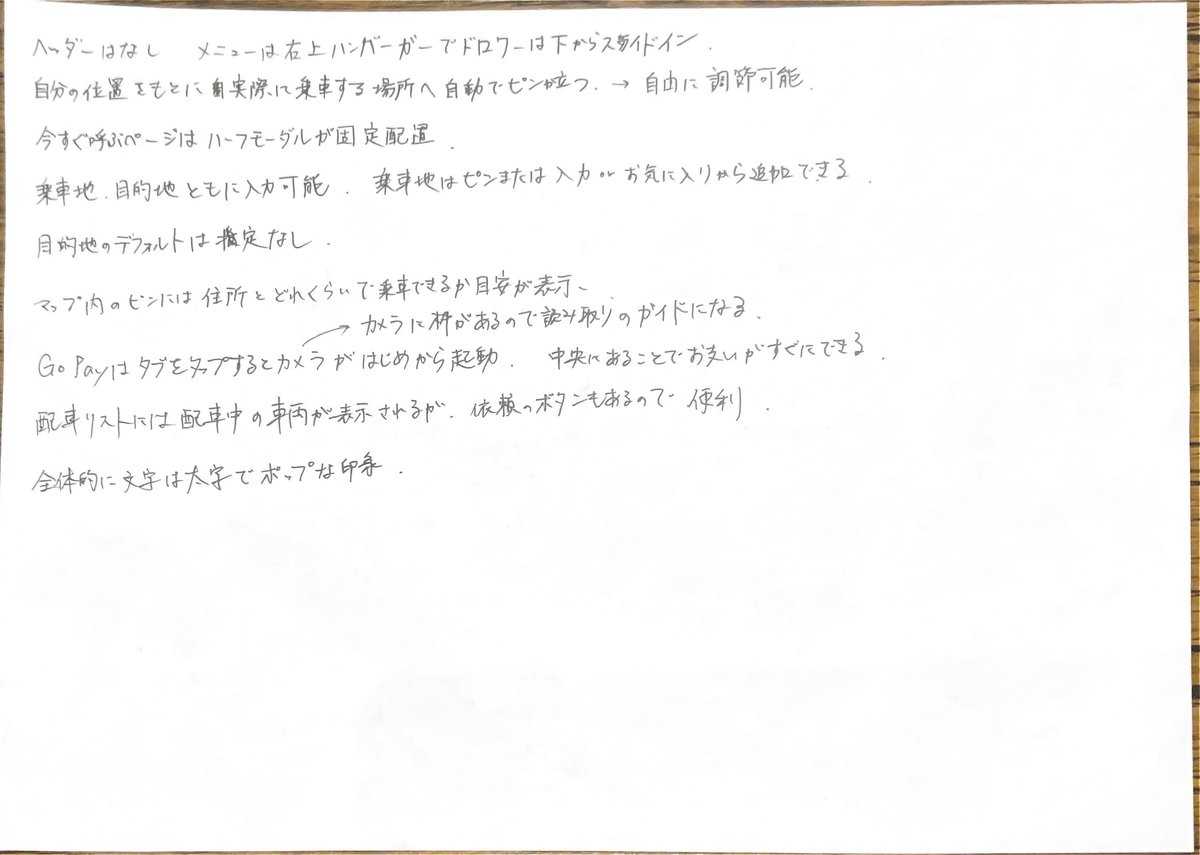 ヘッダーはなし　メニューは右上ハンバーガーでドロワーは下からスライドイン.
自分の位置をもとに実際に乗車する場所へ自動でピンが立つ. → 自由に調節可能.
今すぐ呼ぶページはハーフモーダルが固定配置.
乗車地、目的地ともに入力可能. 乗車地はピンまたは入力orお気に入りから追加できる.
目的地のデフォルトは指定なし.
マップ内のピンには住所とどれくらいで乗車できるか目安が表示、
→ カメラに枠があるので読み取りのガイドになる.
Go Payはタブをタップするとカメラがはじめから起動. 中央にあることでお支いがすぐにできる.
配車リストには配車中の車両が表示されるが、依頼のボタンもあるので便利.
全体的に文字は太字でポップな印象.